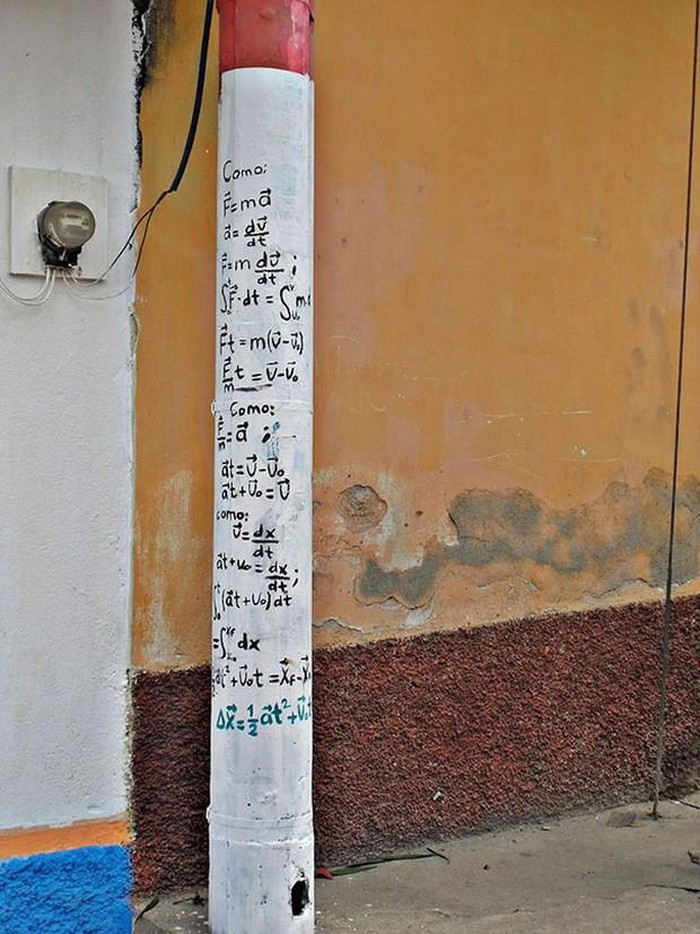 Como:
F⃗=ma⃗
a⃗=dv⃗/dt
F⃗=m dv⃗/dt ;
∫₀ᵗF⃗·dt = ∫ᵥ₀ᵛ m d
F⃗t = m(v⃗-v⃗₀)
F⃗/m t = v⃗-v⃗₀
Como:
F⃗/m = a⃗ ;
a⃗t=v⃗-v⃗₀
a⃗t+v⃗₀=v⃗
como:
v⃗=dx/dt
a⃗t+v₀=dx/dt;
∫₀ᵗ(a⃗t+v₀)dt
=∫ₓ₀ˣᶠ dx
a⃗t²+v⃗₀t =x⃗F-x⃗₀
Δx⃗=1/2 a⃗t²+v⃗₀t